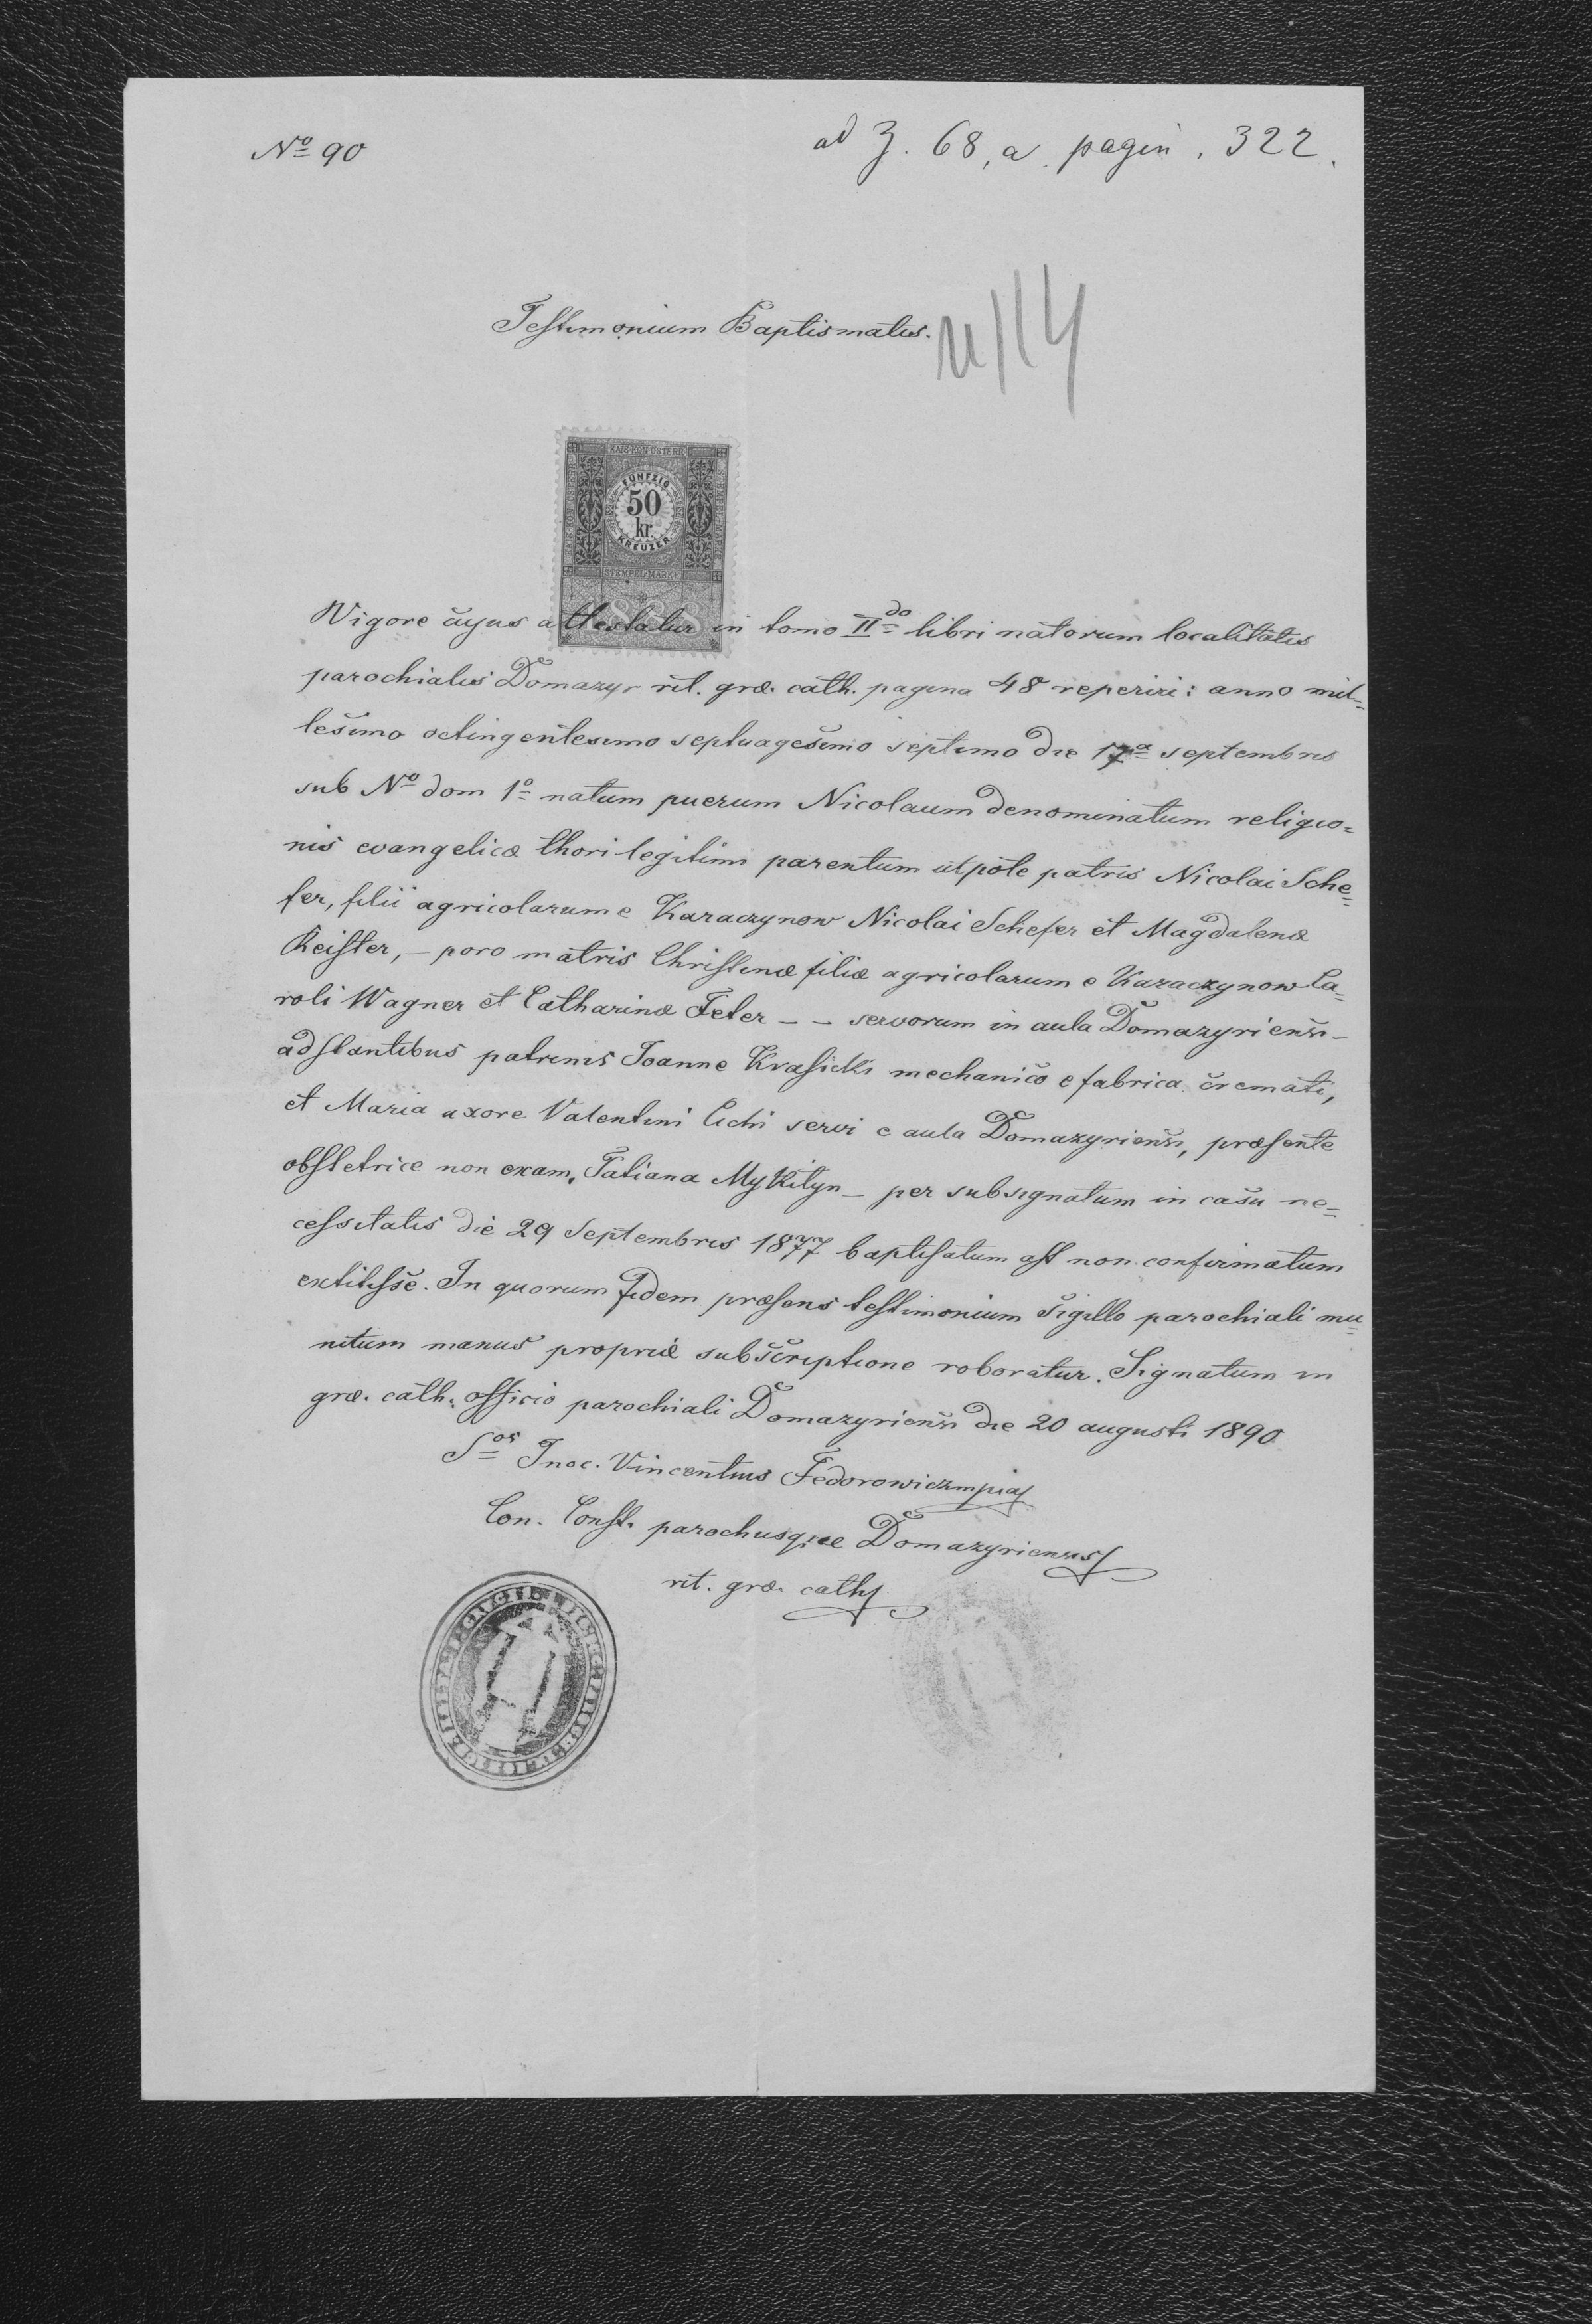 Nº 90
ad Z. 68, a. pagin. 322.
Testimonium Baptismatis.
KAIS. KÖN. ÖSTERR.
FÜNFZIG
50
kr.
KREUZER
STEMPEL-MARKE
1888
Wigore cujus attestatur in tomo II do libri natorum localitatis
parochialis Domazyr rit. græ. cath. pagina 48 reperiri: anno mil=
lesimo octingentesimo septuagesimo septimo die 17a septembris
sub Nº dom 1º natum puerum Nicolaum denominatum religio=
nis evangelicæ thori legitimi parentum utpote patris Nicolai Sche=
fer, filii agricolarum e Karaczynow Nicolai Schefer et Magdalenæ
Reister, – poro matris Christinæ filiæ agricolarum e Karaczynow Ca=
roli Wagner et Catharinæ Feter – – servorum in aula Domazyriensi –
adstantibus patrinis Joanne Krasicki mechanico e fabrica cremati,
et Maria uxore Valentini Cichi servi e aula Domazyriensi, præsente
obstetrice non exam. Tatiana Mykityn – per subsignatum in casu ne=
cessitatis die 29 Septembris 1877 baptisatum ast non confirmatum
extitisse. In quorum fidem præsens testimonium sigillo parochiali mu=
nitum manus propriæ subscriptione roboratur. Signatum in
græ. cath. officio parochiali Domazyriensi die 20 augusti 1890
Inoc. Vincentius Fedorowicz mpia
Con. Const. parochusque Domazyriensis
rit. græ. cath